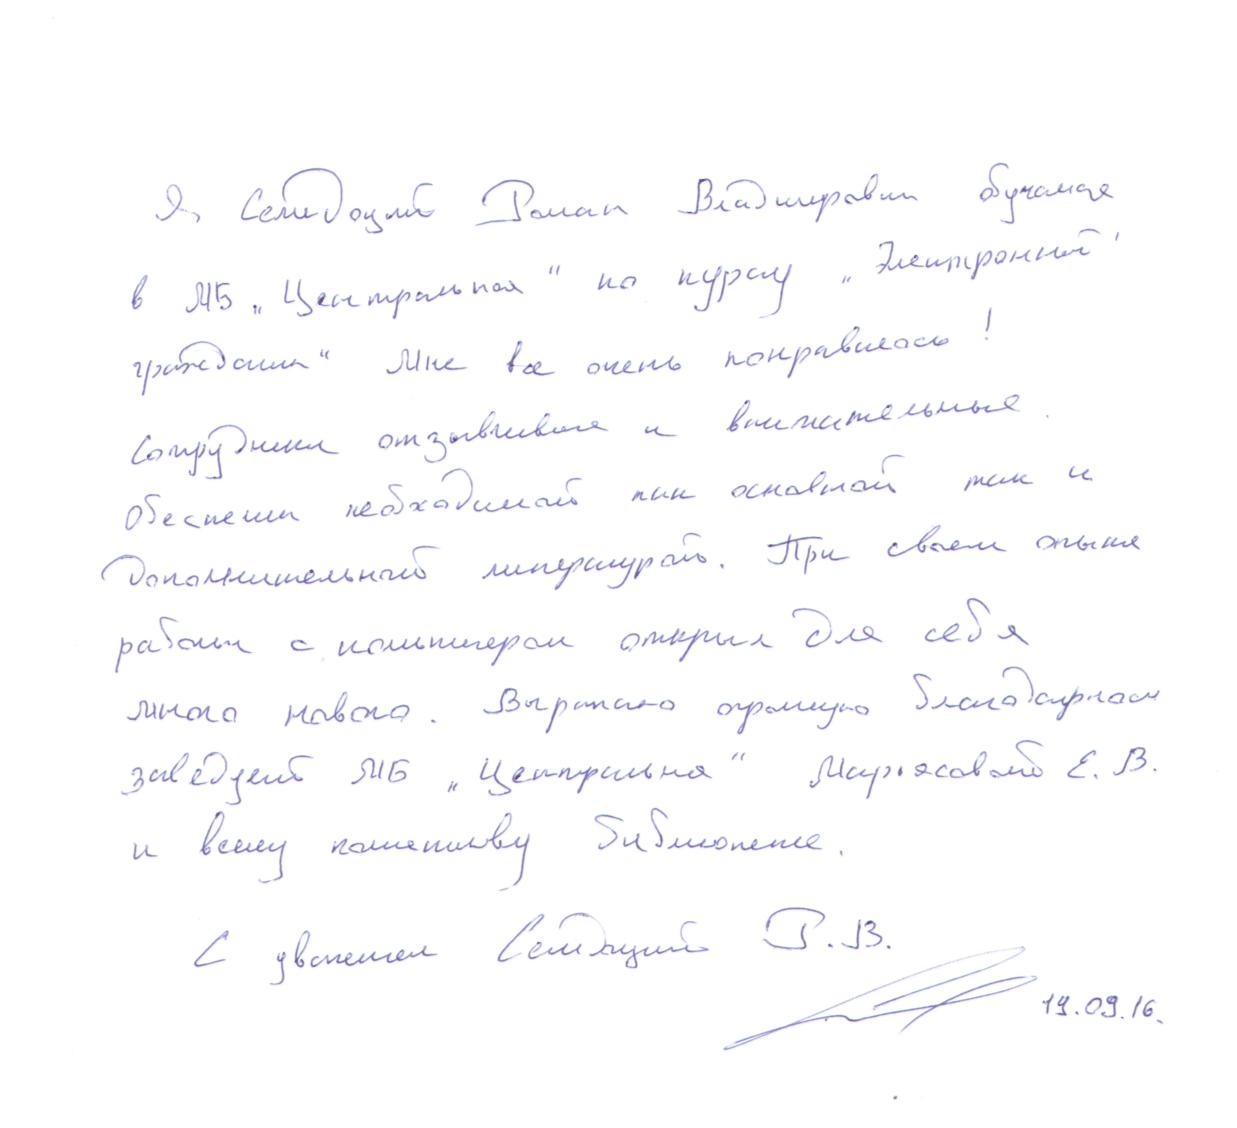 Я, Семидоцкий Роман Владимирович обучался
в МБ „Центральная“ по курсу „Электронный
гражданин“ Мне все очень понравилось!
Сотрудники отзывчивые и внимательные.
Обеспечили необходимой как основной так и
дополнительной литературой. При своем опыте
работы с компьютером открыл для себя
много нового. Выражаю огромную благодарность
заведующей МБ „Центральная“ Марьясовой Е. В.
и всему коллективу библиотеки.
С уважением Р.В.
19.09.16.